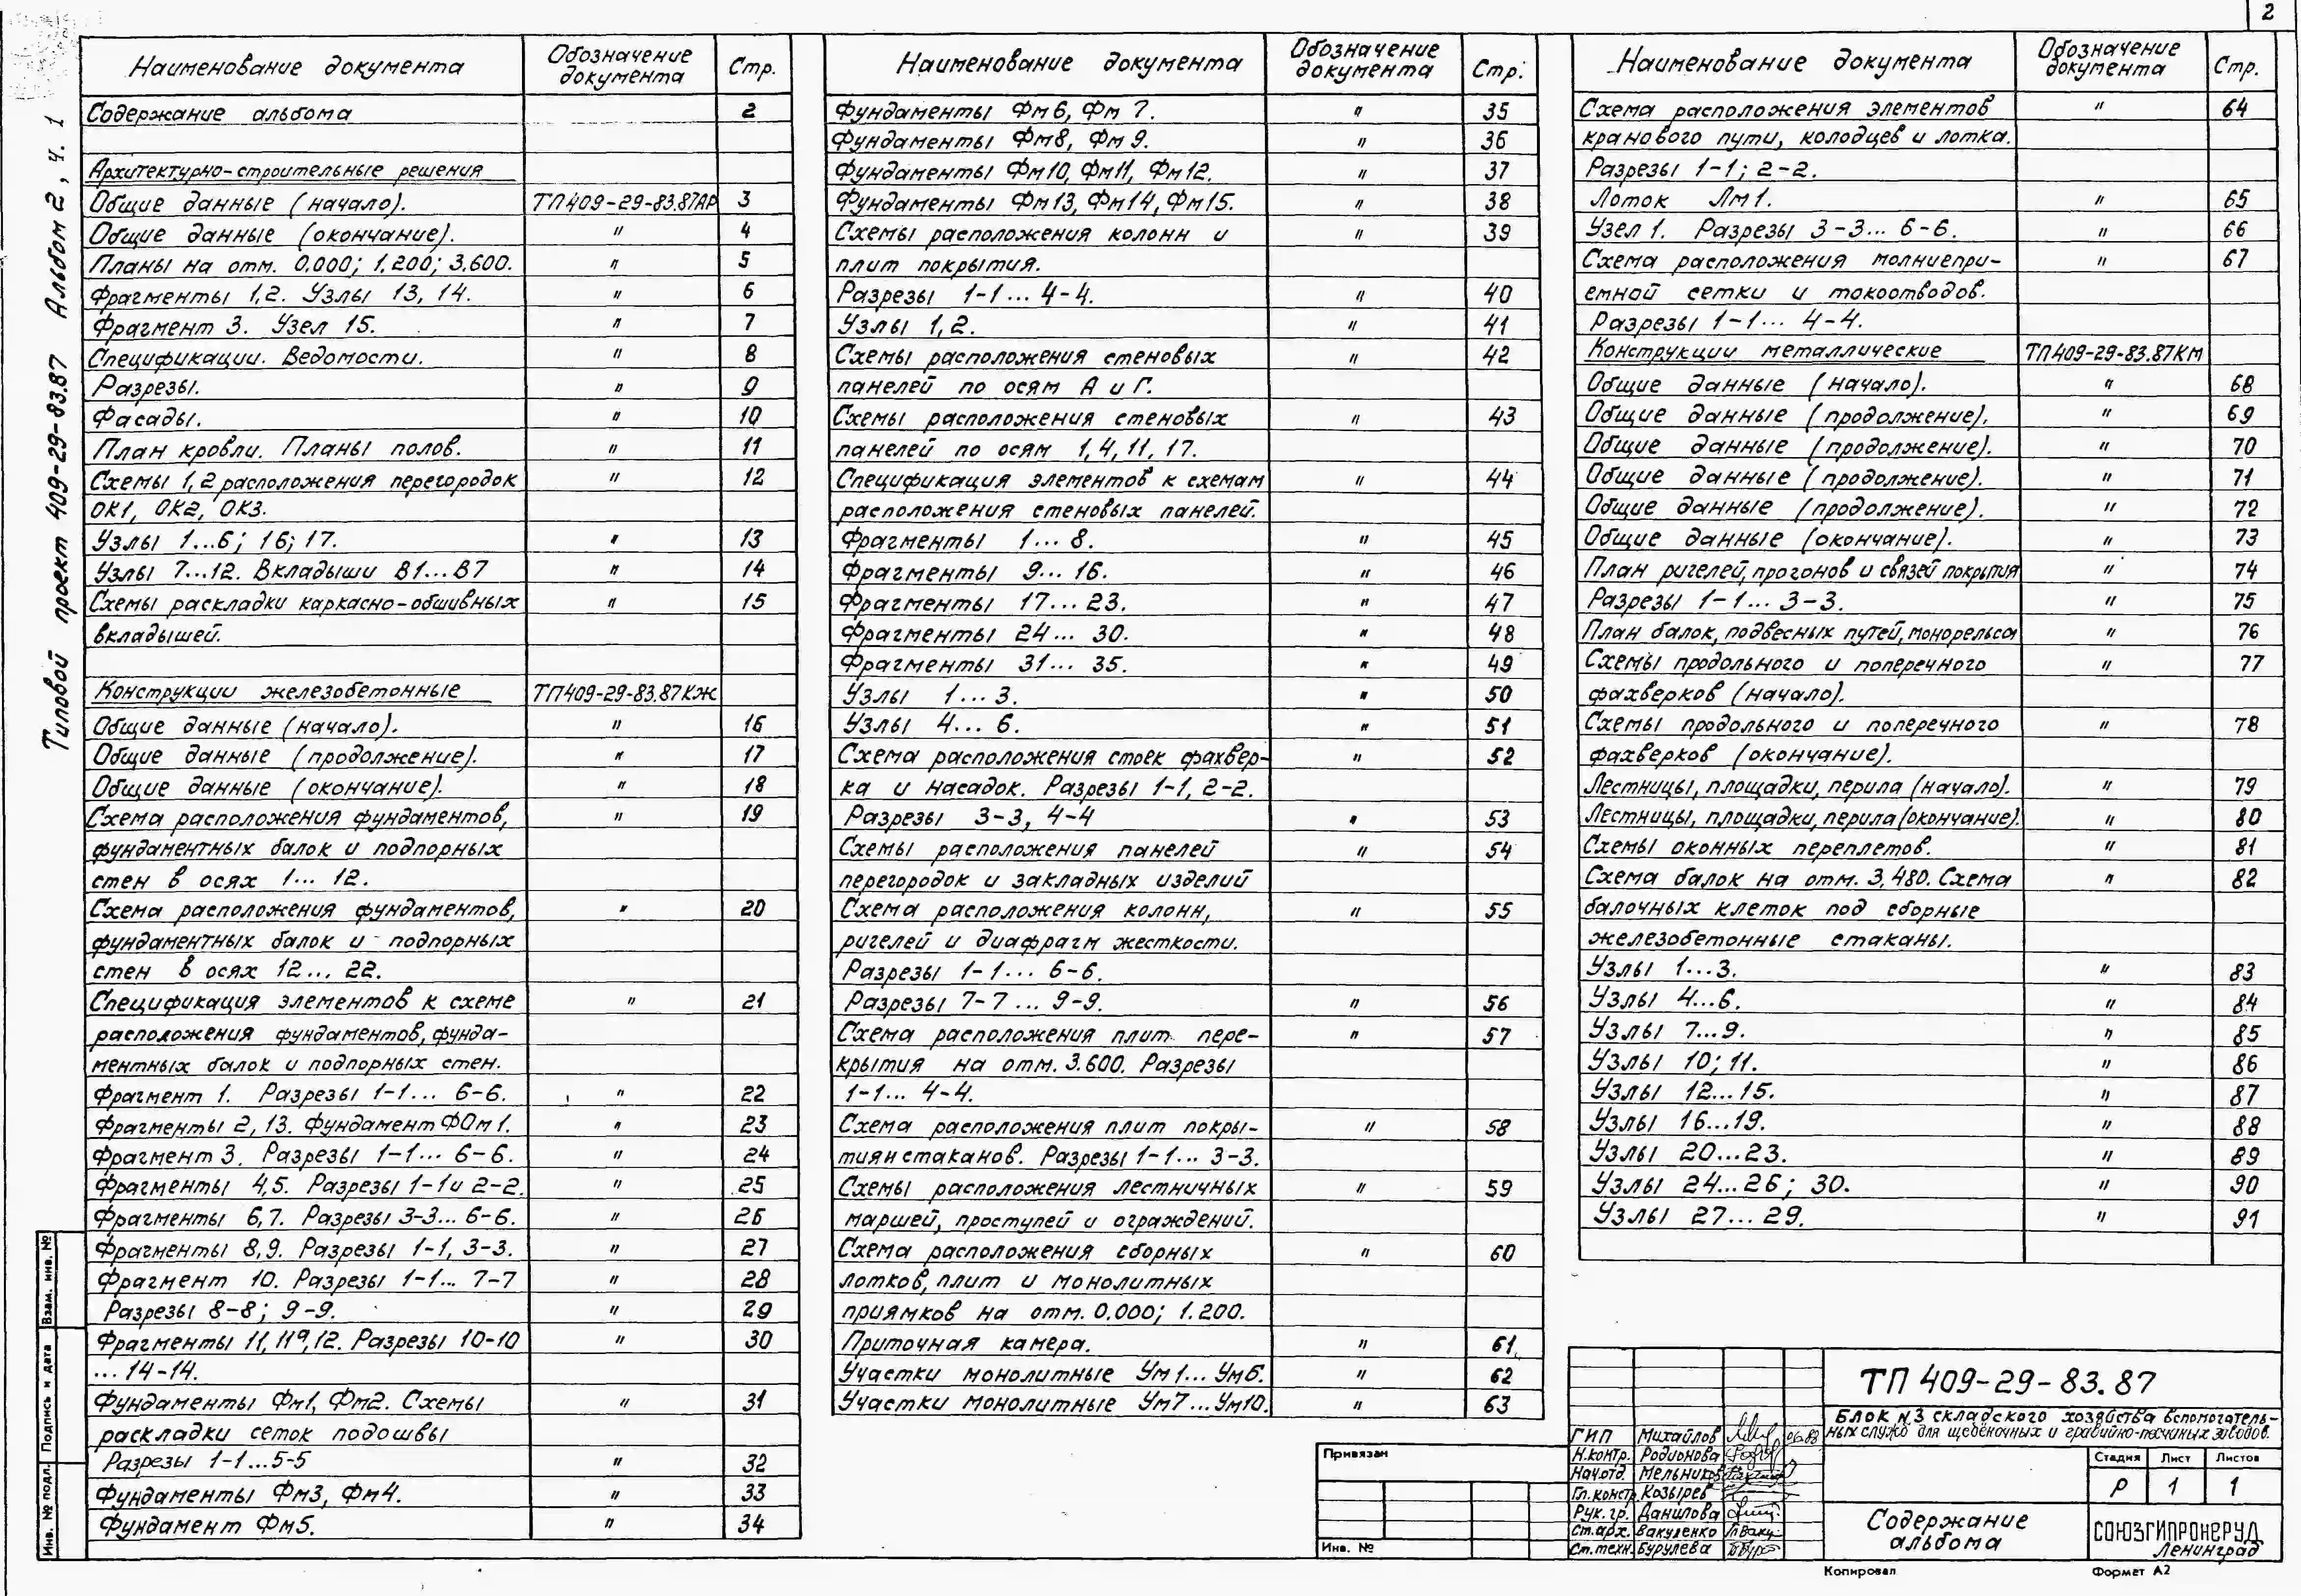 2
Типовой проект 409-29-83.87 Альбом 2, ч. 1
Наименование документа Обозначение документа Стр.
Содержание альбома 2
Архитектурно-строительные решения
Общие данные (начало). ТП409-29-83.87АР 3
Общие данные (окончание). " 4
Планы на отм. 0.000; 1.200; 3.600. " 5
Фрагменты 1,2. Узлы 13, 14. " 6
Фрагмент 3. Узел 15. " 7
Спецификации. Ведомости. " 8
Разрезы. " 9
Фасады. " 10
План кровли. Планы полов. " 11
Схемы 1,2 расположения перегородок " 12
ОК1, ОК2, ОК3.
Узлы 1...6; 16; 17. " 13
Узлы 7...12. Вкладыши В1...В7 " 14
Схемы раскладки каркасно-обшивных " 15
вкладышей.
Конструкции железобетонные ТП409-29-83.87КЖ
Общие данные (начало). " 16
Общие данные (продолжение). " 17
Общие данные (окончание). " 18
Схема расположения фундаментов, " 19
фундаментных балок и подпорных
стен в осях 1... 12.
Схема расположения фундаментов, " 20
фундаментных балок и подпорных
стен в осях 12... 22.
Спецификация элементов к схеме " 21
расположения фундаментов, фунда-
ментных балок и подпорных стен.
Фрагмент 1. Разрезы 1-1... 6-6. " 22
Фрагменты 2, 13. Фундамент ФОм1. " 23
Фрагмент 3. Разрезы 1-1... 6-6. " 24
Фрагменты 4,5. Разрезы 1-1 и 2-2. " 25
Фрагменты 6,7. Разрезы 3-3... 6-6. " 26
Фрагменты 8,9. Разрезы 1-1, 3-3. " 27
Фрагмент 10. Разрезы 1-1... 7-7 " 28
Разрезы 8-8; 9-9. " 29
Фрагменты 11, 11а, 12. Разрезы 10-10 " 30
...14-14.
Фундаменты Фм1, Фм2. Схемы " 31
раскладки сеток подошвы
Разрезы 1-1...5-5 " 32
Фундаменты Фм3, Фм4. " 33
Фундамент Фм5. " 34
Наименование документа Обозначение документа Стр.
Фундаменты Фм6, Фм 7. " 35
Фундаменты Фм8, Фм 9. " 36
Фундаменты Фм10, Фм11, Фм12. " 37
Фундаменты Фм13, Фм14, Фм15. " 38
Схемы расположения колонн и " 39
плит покрытия.
Разрезы 1-1... 4-4. " 40
Узлы 1,2. " 41
Схемы расположения стеновых " 42
панелей по осям А и Г.
Схемы расположения стеновых " 43
панелей по осям 1, 4, 11, 17.
Спецификация элементов к схемам " 44
расположения стеновых панелей.
Фрагменты 1... 8. " 45
Фрагменты 9... 16. " 46
Фрагменты 17... 23. " 47
Фрагменты 24... 30. " 48
Фрагменты 31... 35. " 49
Узлы 1... 3. " 50
Узлы 4... 6. " 51
Схема расположения стоек фахвер- " 52
ка и насадок. Разрезы 1-1, 2-2.
Разрезы 3-3, 4-4 " 53
Схемы расположения панелей " 54
перегородок и закладных изделий
Схема расположения колонн, " 55
ригелей и диафрагм жесткости.
Разрезы 1-1... 6-6.
Разрезы 7-7... 9-9. " 56
Схема расположения плит пере- " 57
крытия на отм. 3.600. Разрезы
1-1... 4-4.
Схема расположения плит покры- " 58
тия и стаканов. Разрезы 1-1... 3-3.
Схемы расположения лестничных " 59
маршей, проступей и ограждений.
Схема расположения сборных " 60
лотков, плит и монолитных
приямков на отм. 0.000; 1.200.
Приточная камера. " 61
Участки монолитные Ум1... Ум6. " 62
Участки монолитные Ум7... Ум10. " 63
Наименование документа Обозначение документа Стр.
Схема расположения элементов " 64
кранового пути, колодцев и лотка.
Разрезы 1-1; 2-2.
Лоток Лм1. " 65
Узел 1. Разрезы 3-3... 6-6. " 66
Схема расположения молниепри- " 67
емной сетки и токоотводов.
Разрезы 1-1... 4-4.
Конструкции металлические ТП409-29-83.87КМ
Общие данные (начало). " 68
Общие данные (продолжение). " 69
Общие данные (продолжение). " 70
Общие данные (продолжение). " 71
Общие данные (продолжение). " 72
Общие данные (окончание). " 73
План ригелей, прогонов и связей покрытия " 74
Разрезы 1-1... 3-3. " 75
План балок, подвесных путей, монорельса " 76
Схемы продольного и поперечного " 77
фахверков (начало).
Схемы продольного и поперечного " 78
фахверков (окончание).
Лестницы, площадки, перила (начало). " 79
Лестницы, площадки, перила (окончание). " 80
Схемы оконных переплетов. " 81
Схема балок на отм. 3,480. Схема " 82
балочных клеток под сборные
железобетонные стаканы.
Узлы 1...3. " 83
Узлы 4...6. " 84
Узлы 7...9. " 85
Узлы 10; 11. " 86
Узлы 12...15. " 87
Узлы 16...19. " 88
Узлы 20...23. " 89
Узлы 24...26; 30. " 90
Узлы 27... 29. " 91
Взам. инв. №
Подпись и дата
Инв. № подл.
Привязан
Инв. №
ГИП Михайлов 06.88
Н.контр. Родионова
Нач.отд. Мельников
Гл. констр. Козырев
Рук. гр. Данилова
Ст.арх. Вакуленко
Ст.техн. Бурулева
ТП 409-29-83.87
Блок №3 складского хозяйства вспомогатель-
ных служб для щебеночных и гравийно-песчаных заводов.
Стадия Лист Листов
Р 1 1
Содержание альбома
СОЮЗГИПРОНЕРУД
Ленинград
Копировал
Формат А2